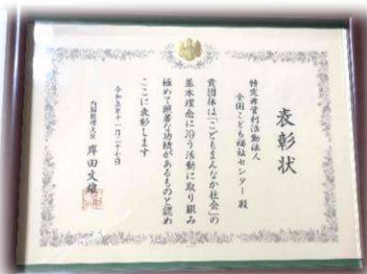 表彰状
特定非営利活動法人
全国こども福祉センター 殿
貴団体は「こどもまんなか社会」の
基本理念に沿う活動に取り組み
極めて顕著な功績があるものと認め
ここに表彰します
令和五年十一月二十七日
内閣総理大臣 岸田文雄